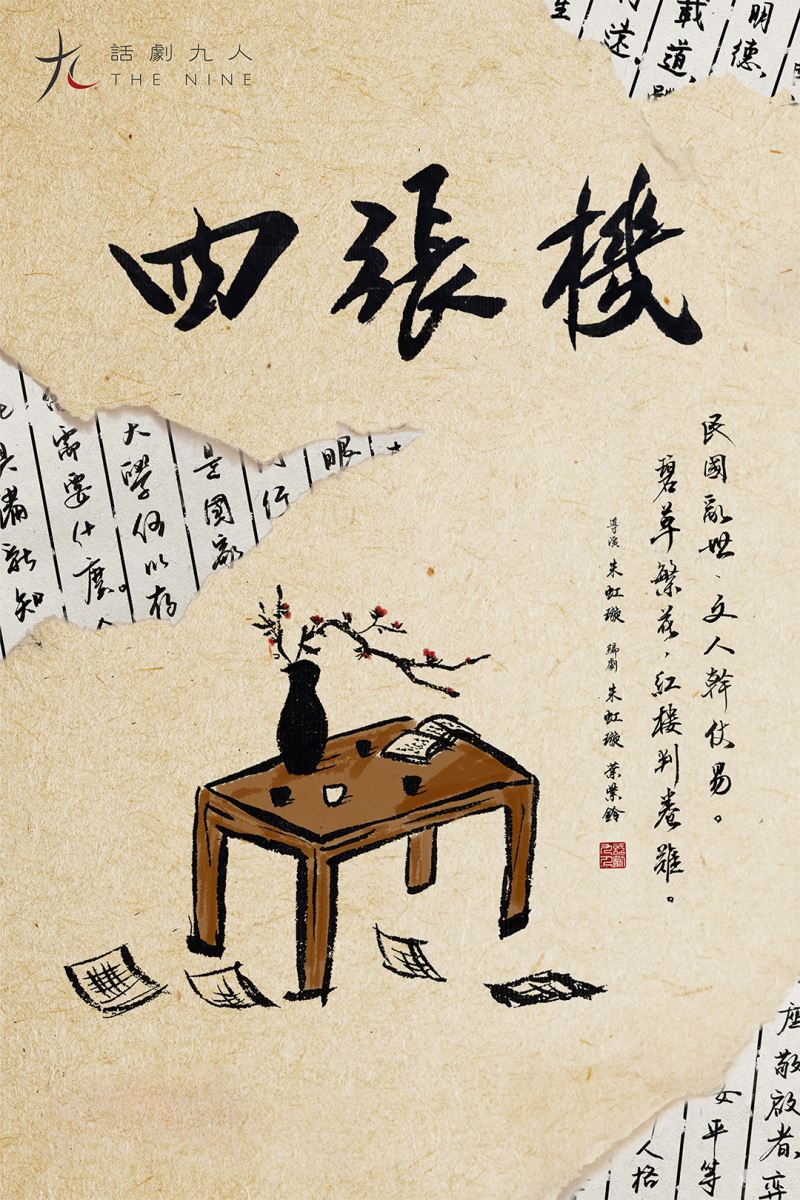 話劇九人
THE NINE
四張機
民國亂世、文人幹仗易。
碧草繁花，紅樓判卷難。
導演 朱虹璇 編劇 朱虹璇 葉紫鈴
明德、
載道、
需要什麼。
大學何以存
是國家
眼
具備新知
座敬啟者、弈
女平等
人格